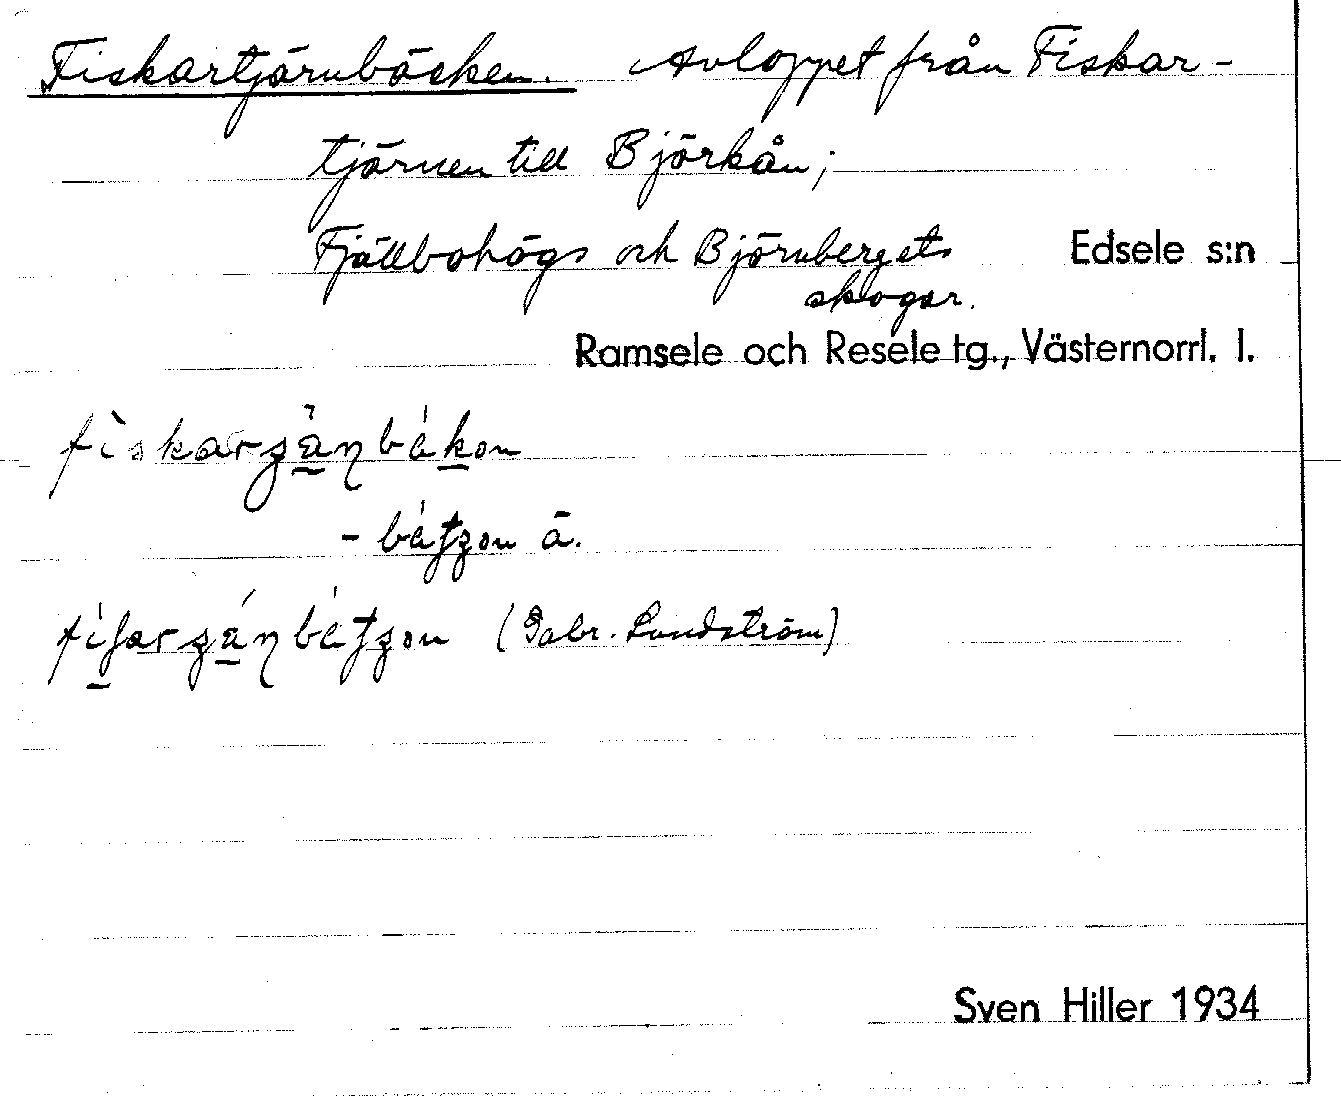 Fiskartjärnbäcken. Avloppet från Fiskar-
tjärnen till Björkån;
Fjällbohögs och Björnbergets Edsele s:n
skogar.
Ramsele och Resele tg., Västernorrl. l.
- ä.
(Gabr. Lundström)
Sven Hiller 1934